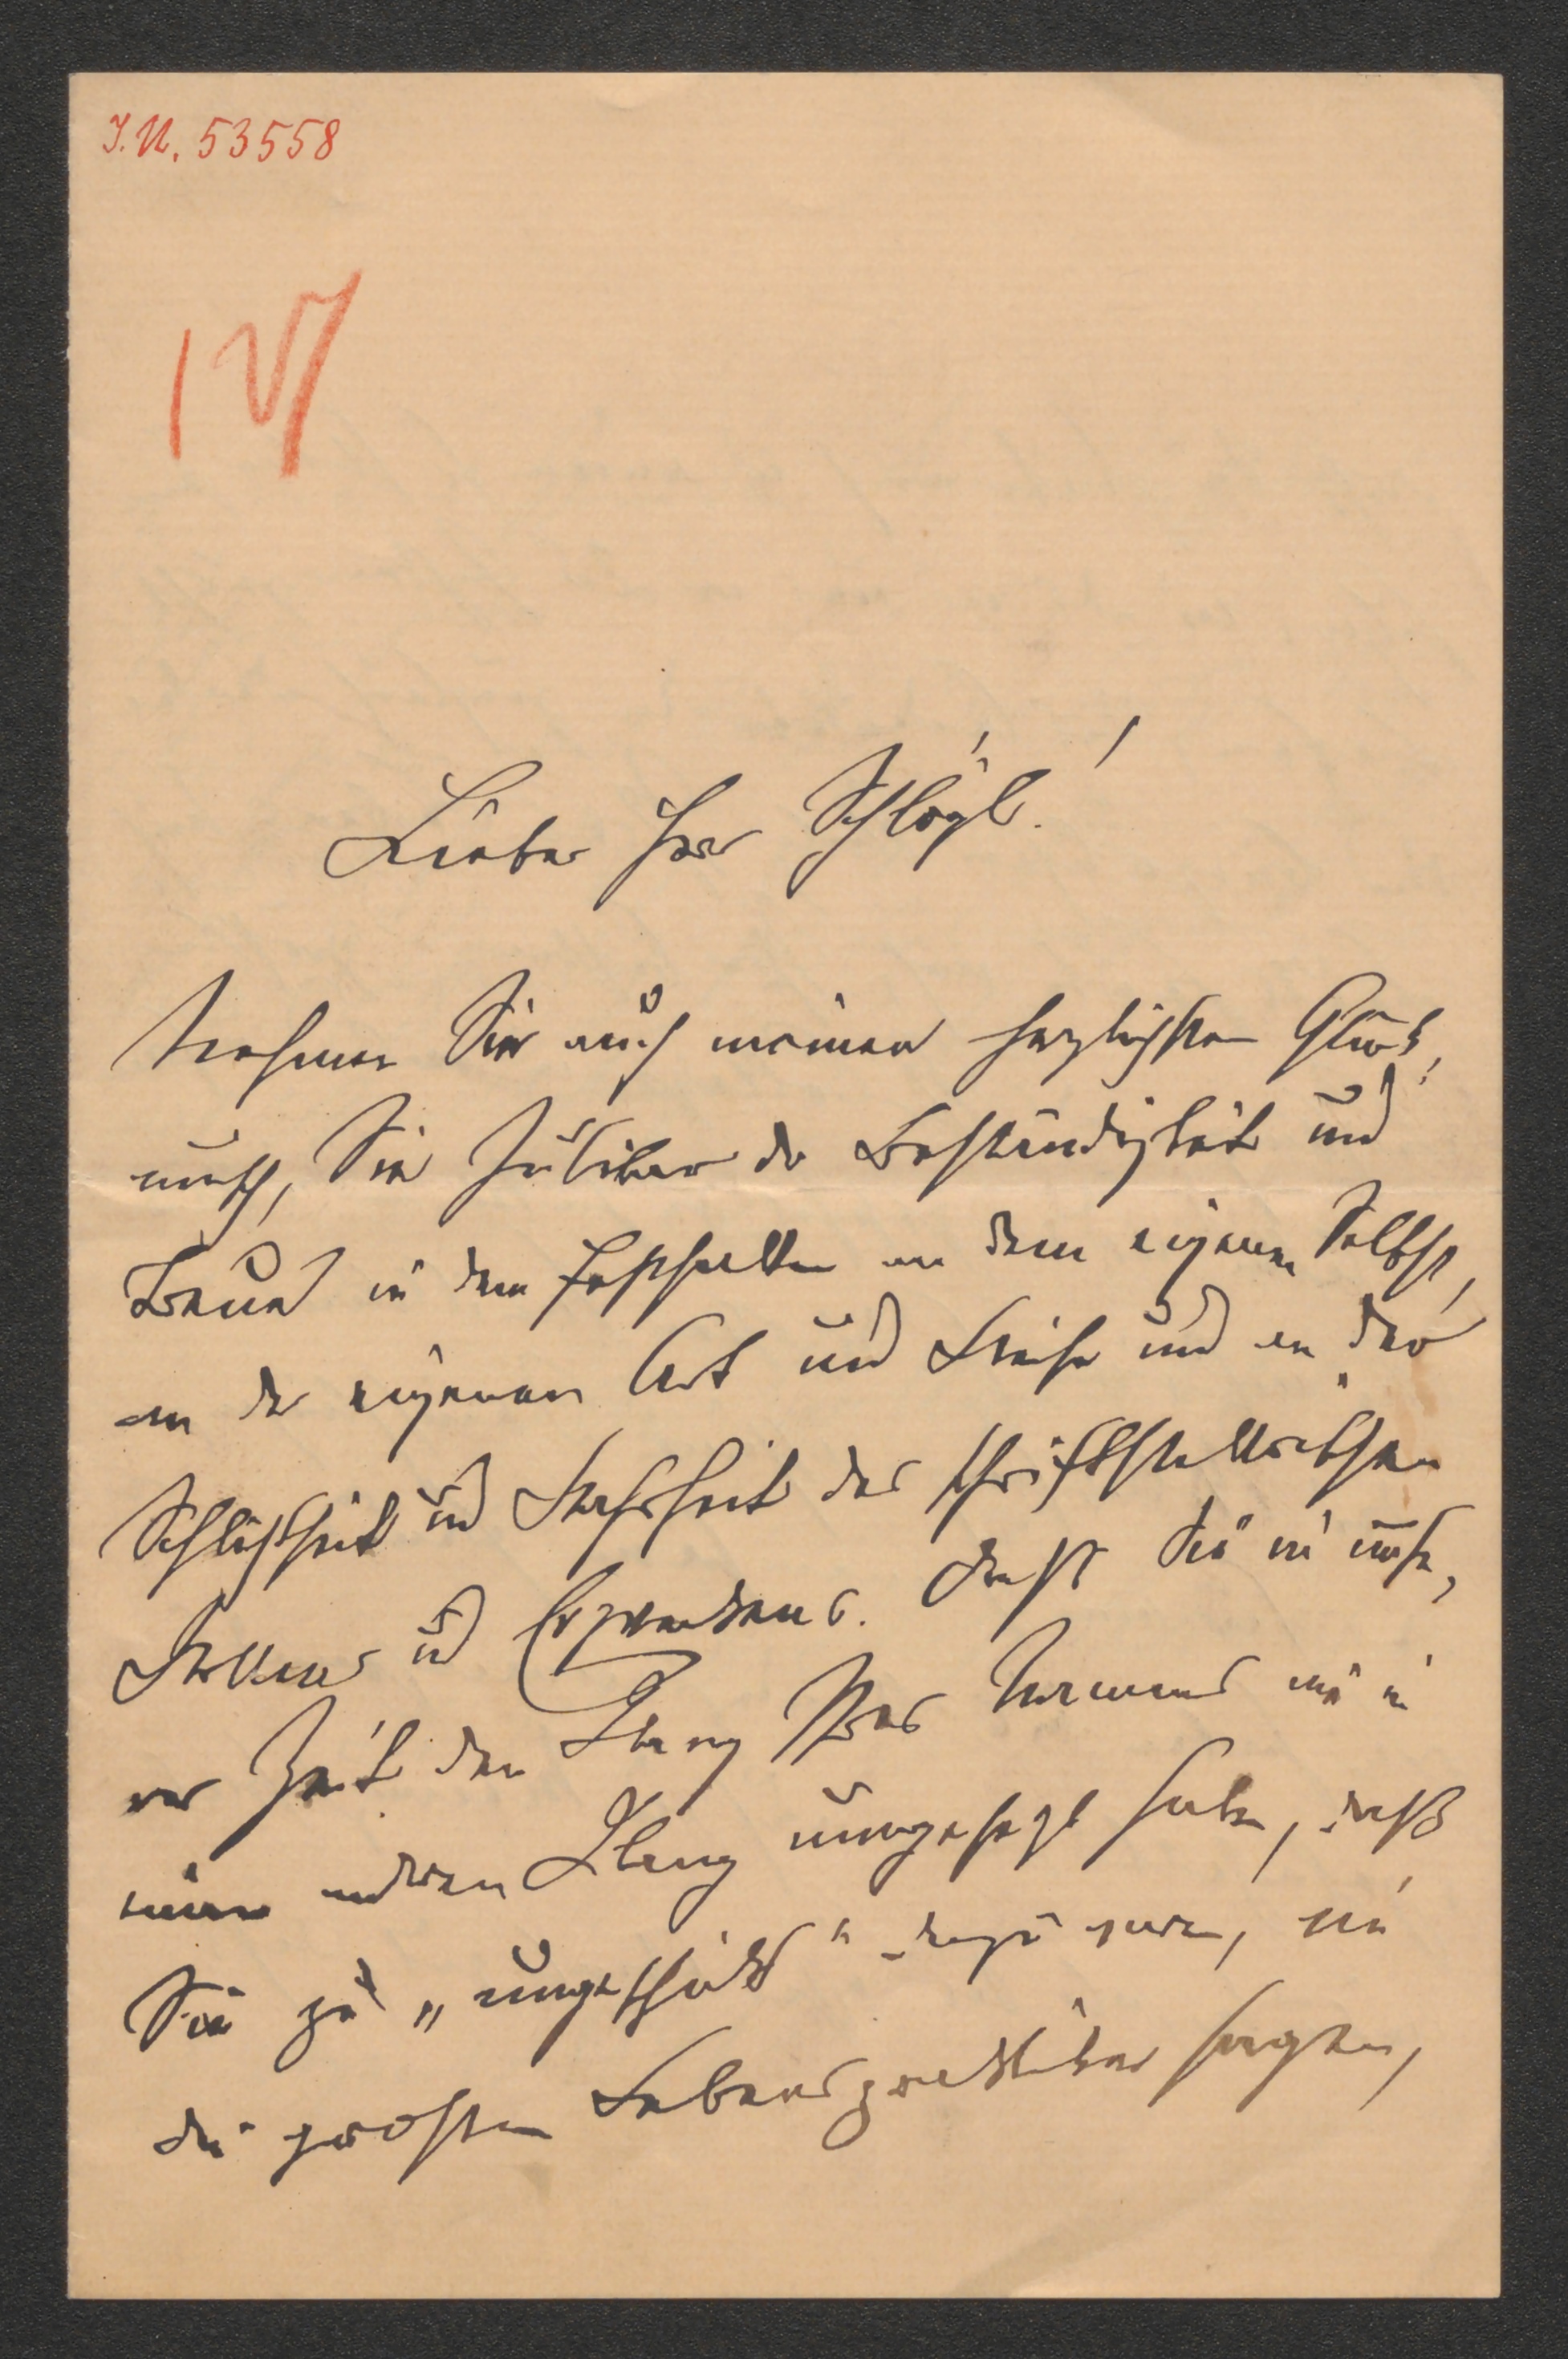 I.N. 53558
Lieber Herr Schlögl!
Nehmen Sie auch meinen herzlichsten Glück-
wunsch, Sie Jubilar der Beständigkeit und
Treue in dem Festhalten an dem eigenen Selbst,
an der eigenen Art und Weise und an der
Schlichtheit und Wahrheit des schriftstellerischen
Wollens und Daß Sie in
Zeit den Klang Ihres Namens nie in
einen anderen Klang umgesetzt haben, daß
Sie zu „ungeschickt" dazu waren, wie
die großen Lebenspraktiker sagten,